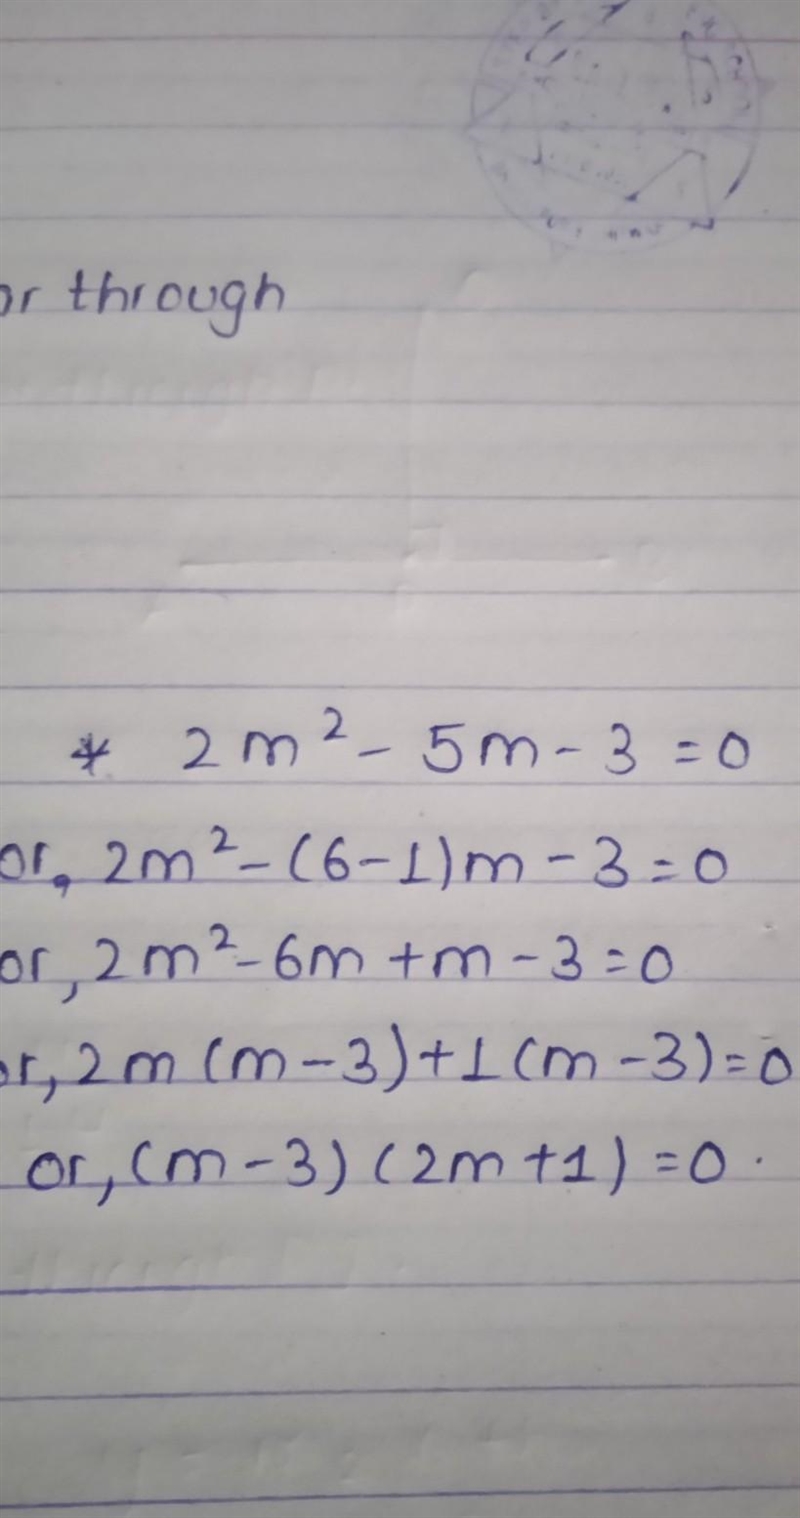 or through
* 2m² - 5m - 3 = 0
or, 2m² - (6-1)m - 3 = 0
or, 2m² - 6m + m - 3 = 0
or, 2m (m-3) + 1 (m-3) = 0
or, (m-3) (2m+1) = 0.